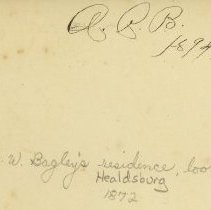 A. P. B.
189
. W. Bagley's residence, loo
Healdsburg
1872